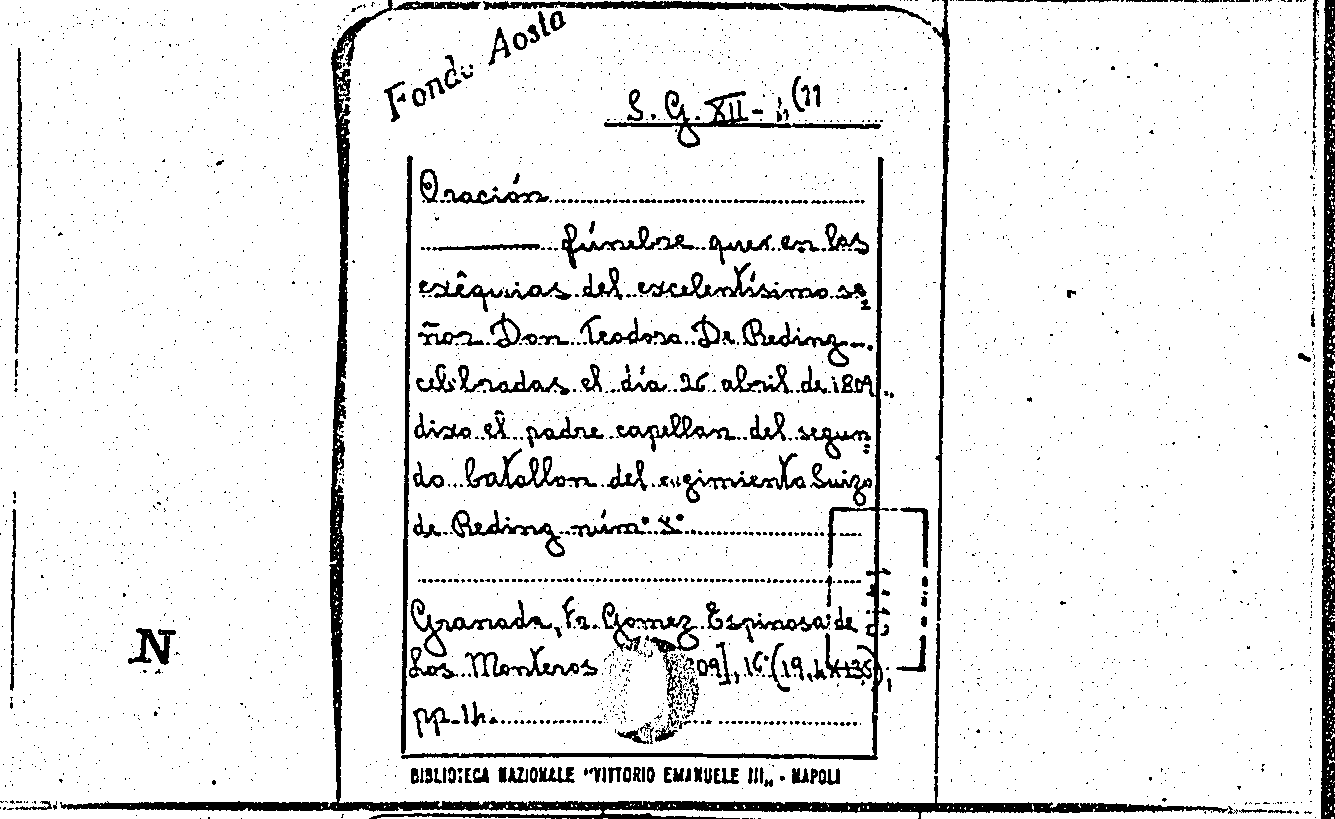 Fondo Aosta
S. G. XII-
Oración
fúnebre que en las
exêquias del excelentísimo se
ñor Don Teodoro De Reding
celebradas el día 26 abril de 1809
dixo el padre capellan del segun
do batallon del regimiento Suizo
de Reding núm° X°
Granada, Fr. Gomez Espinosa de
Los Monteros 09], 16°
pp. 14.
N
BIBLIOTECA NAZIONALE "VITTORIO EMANUELE III„ - NAPOLI